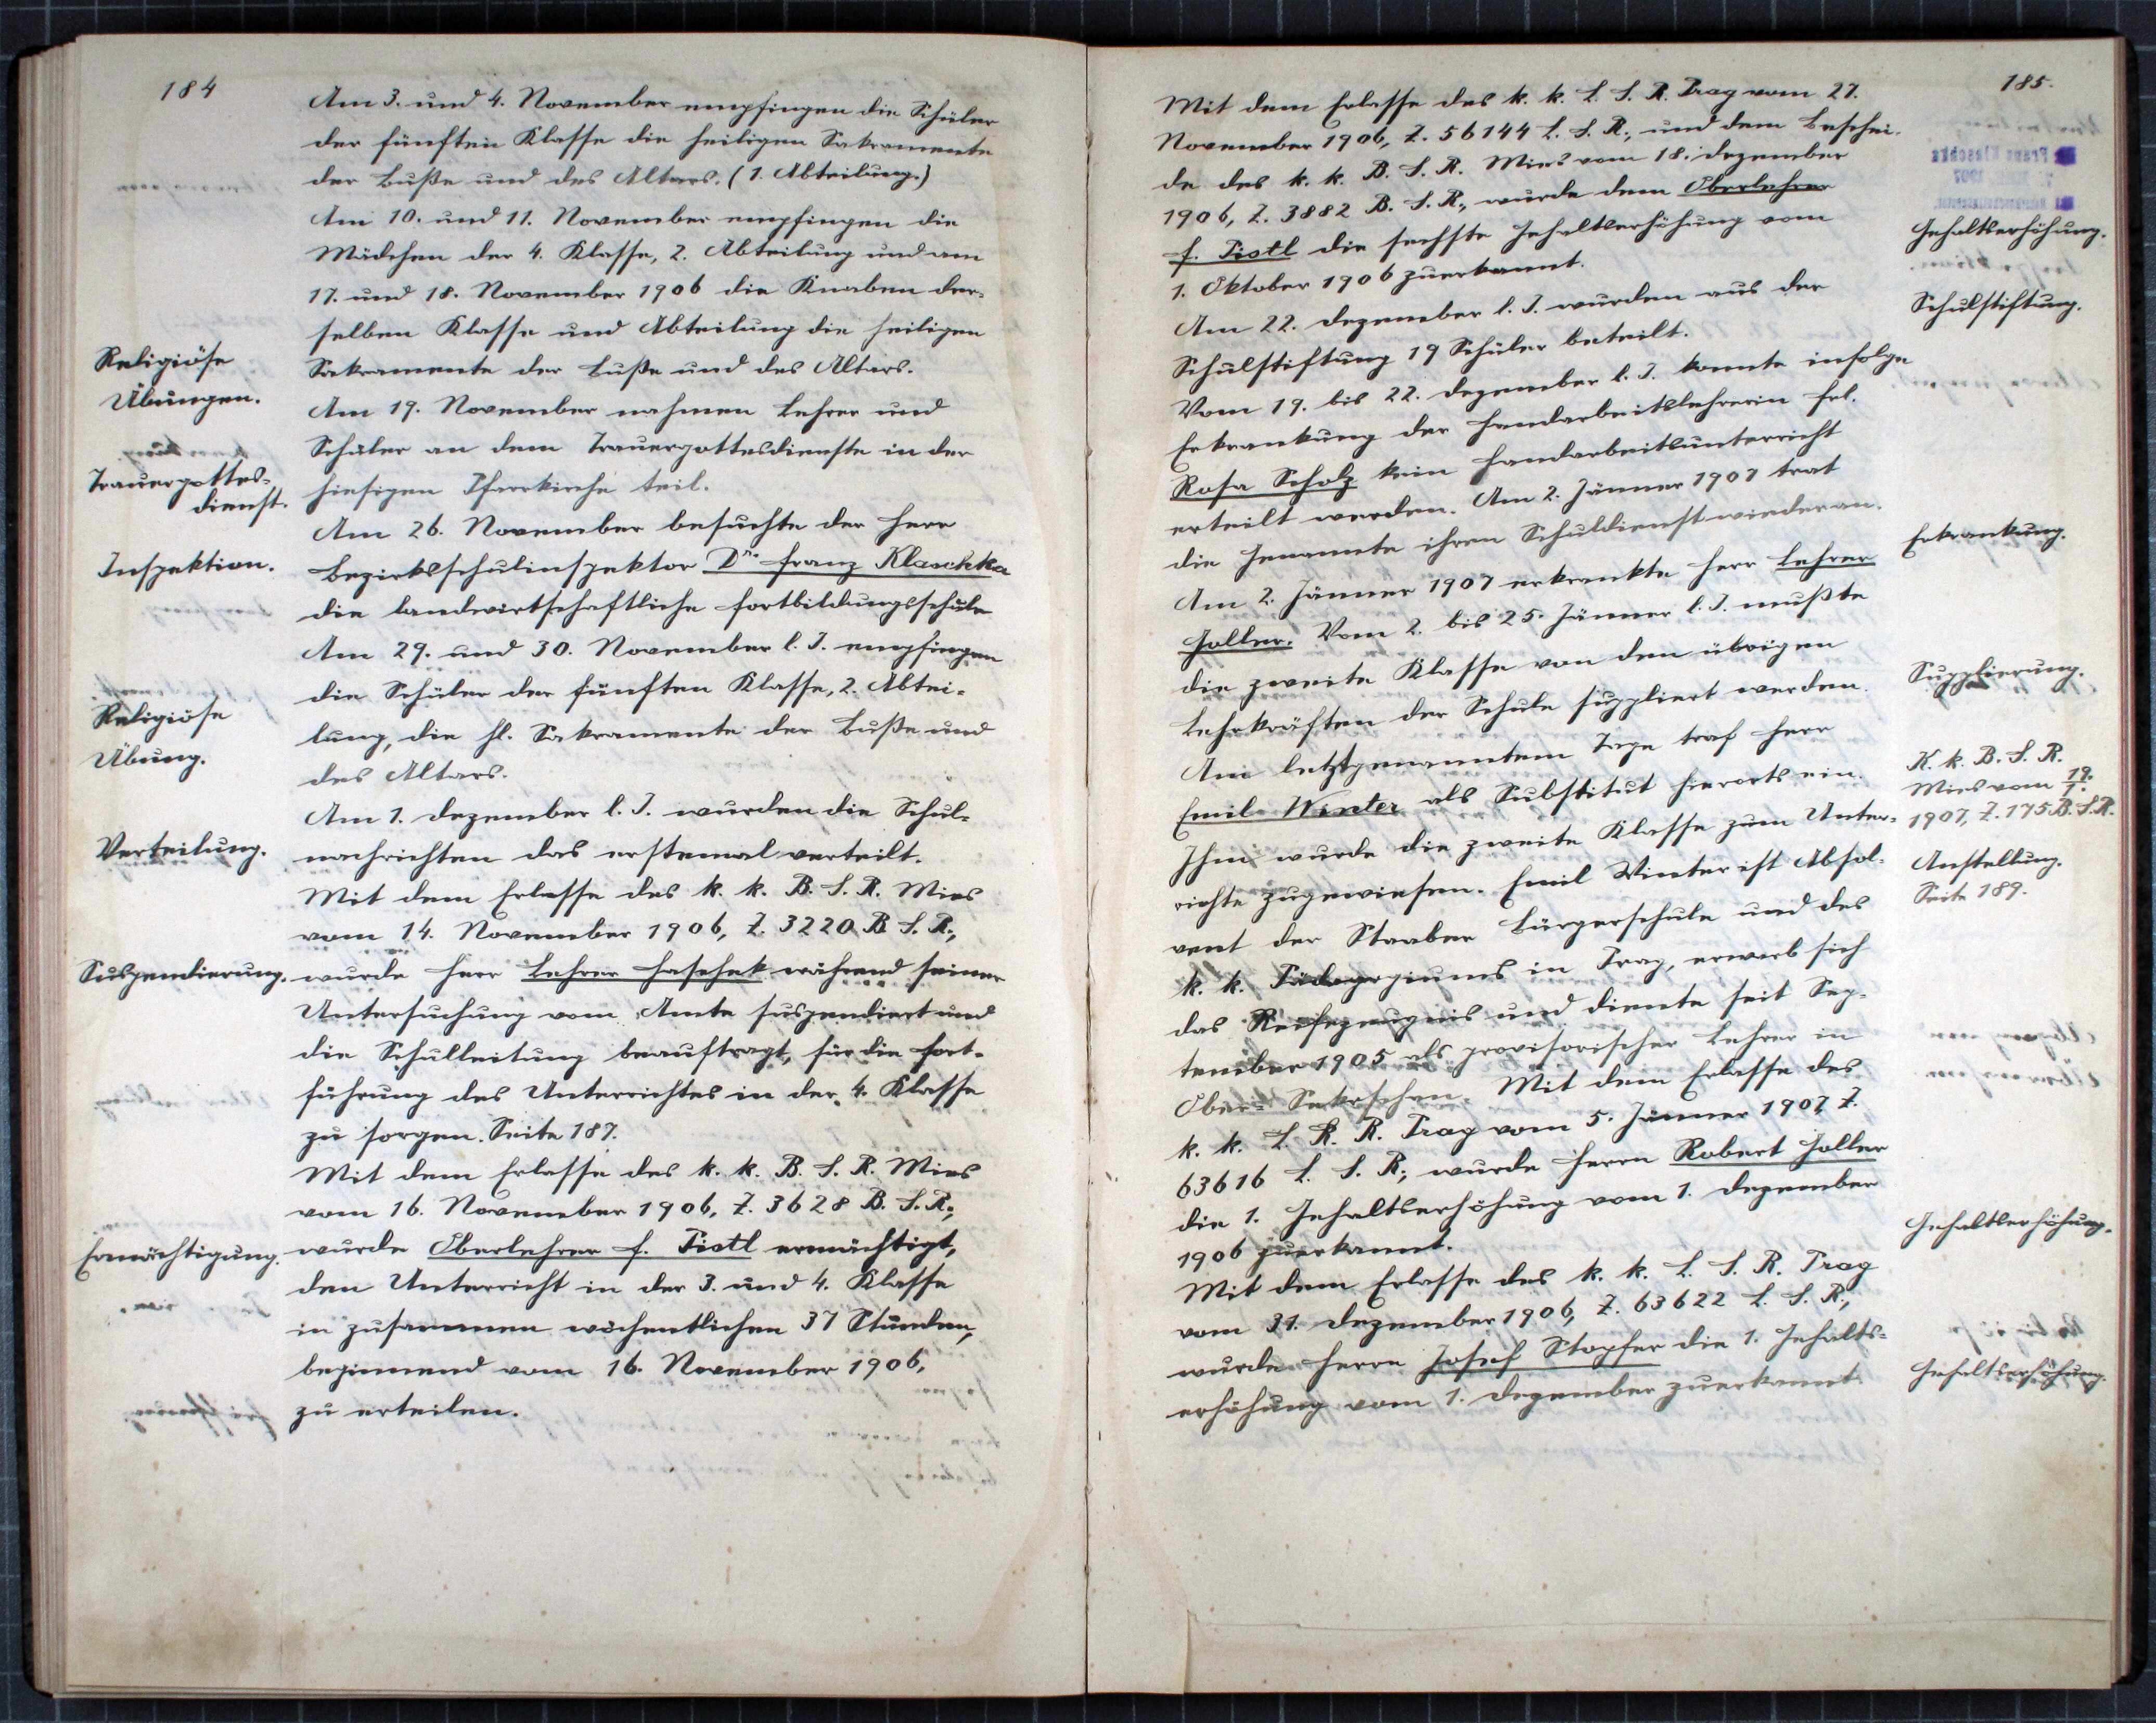 184
Am 3. und 4. November empfingen die Schüler
der fünften Klasse die heiligen Sakramente
der Buße und des Altars. (1. Abteilung.)
Am 10. und 11. November empfingen die
Mädchen der 4. Klasse, 2. Abteilung und am
17. und 18. November 1906 die Knaben der-
selben Klasse und Abteilung die heiligen
Religiöse
Übungen.
Sakramente der Buße und des Altars.
Am 19. November nahmen Lehrer und
Schüler an dem Trauergottesdienste in der
Trauergottes-
dienst.
hiesigen Pfarrkirche teil.
Am 26. November besuchte der Herr
Inspektion.
Bezirksschulinspektor Dr. Franz Klaschka
die landwirtschaftliche Fortbildungsschule
Am 29. und 30. November l. J. empfingen
die Schüler der fünften Klasse, 2. Abtei-
Religiöse
Übung.
lung, die hl. Sakramente der Buße und
des Altars.
Am 1. Dezember l. J. wurden die Schul-
Verteilung.
nachrichten das erstemal verteilt.
Mit dem Erlasse des k. k. B. S. R. Mies
vom 14. November 1906, Z. 3220 B. S. R.,
Suspendierung.
wurde Herr Lehrer Haschek während seiner
Untersuchung vom Amte suspendiert und
die Schulleitung beauftragt, für die Fort-
führung des Unterrichtes in der 4. Klasse
zu sorgen. Seite 187.
Mit dem Erlasse des k. k. B. S. R. Mies
vom 16. November 1906, Z. 3628 B. S. R.,
Ermächtigung.
wurde Oberlehrer F. Pistl ermächtigt,
den Unterricht in der 3. und 4. Klasse
in zusammen wöchentlichen 37 Stunden,
beginnend vom 16. November 1906,
zu erteilen.
185.
Mit dem Erlasse des k. k. L. S. R. Prag vom 27.
November 1906, Z. 56144 L. S. R., und dem Beschei-
de des k. k. B. S. R. Mies vom 18. Dezember
1906, Z. 3882 B. S. R., wurde dem Oberlehrer
Gehaltserhöhung.
F. Pistl die sechste Gehaltserhöhung vom
1. Oktober 1906 zuerkannt.
Schulstiftung.
Am 22. Dezember l. J. wurden aus der
Schulstiftung 19 Schüler beteilt.
Vom 19. bis 22. Dezember l. J. konnte infolge
Erkrankung der Handarbeitslehrerin Frl.
Rosa Scholz kein Handarbeitsunterricht
erteilt werden. Am 2. Jänner 1907 trat
die Genannte ihren Schuldienst wieder an.
Erkrankung.
Am 2. Jänner 1907 erkrankte Herr Lehrer
Goller. Vom 2. bis 25. Jänner l. J. mußte
die zweite Klasse von den übrigen
Supplierung.
Lehrkräften der Schule suppliert werden.
Am letztgenanntem Tage traf Herr
K. k. B. S. R.
Mies vom 19./1.
1907, Z. 175 B. S. R.
Emil Winter als Substitut hierorts ein.
Ihm wurde die zweite Klasse zum Unter-
Anstellung.
Seite 189.
richte zugewiesen. Emil Winter ist Absol-
vent der Staaber Bürgerschule und des
k. k. Pädagogiums in Prag, erwarb sich
das Reifezeugnis und diente seit Sep-
tember 1905 als provisorischer Lehrer in
Ober- Sekerschan. Mit dem Erlasse des
k. k. L. S. R. Prag vom 5. Jänner 1907, Z.
63616 L. S. R., wurde Herrn Robert Goller
die 1. Gehaltserhöhung vom 1. Dezember
Gehaltserhöhung.
1906 zuerkannt.
Mit dem Erlasse des k. k. L. S. R. Prag
vom 31. Dezember 1906, Z. 63622 L. S. R.,
wurde Herrn Josef Stopfer die 1. Gehalts-
Gehaltserhöhung.
erhöhung vom 1. Dezember zuerkannt.